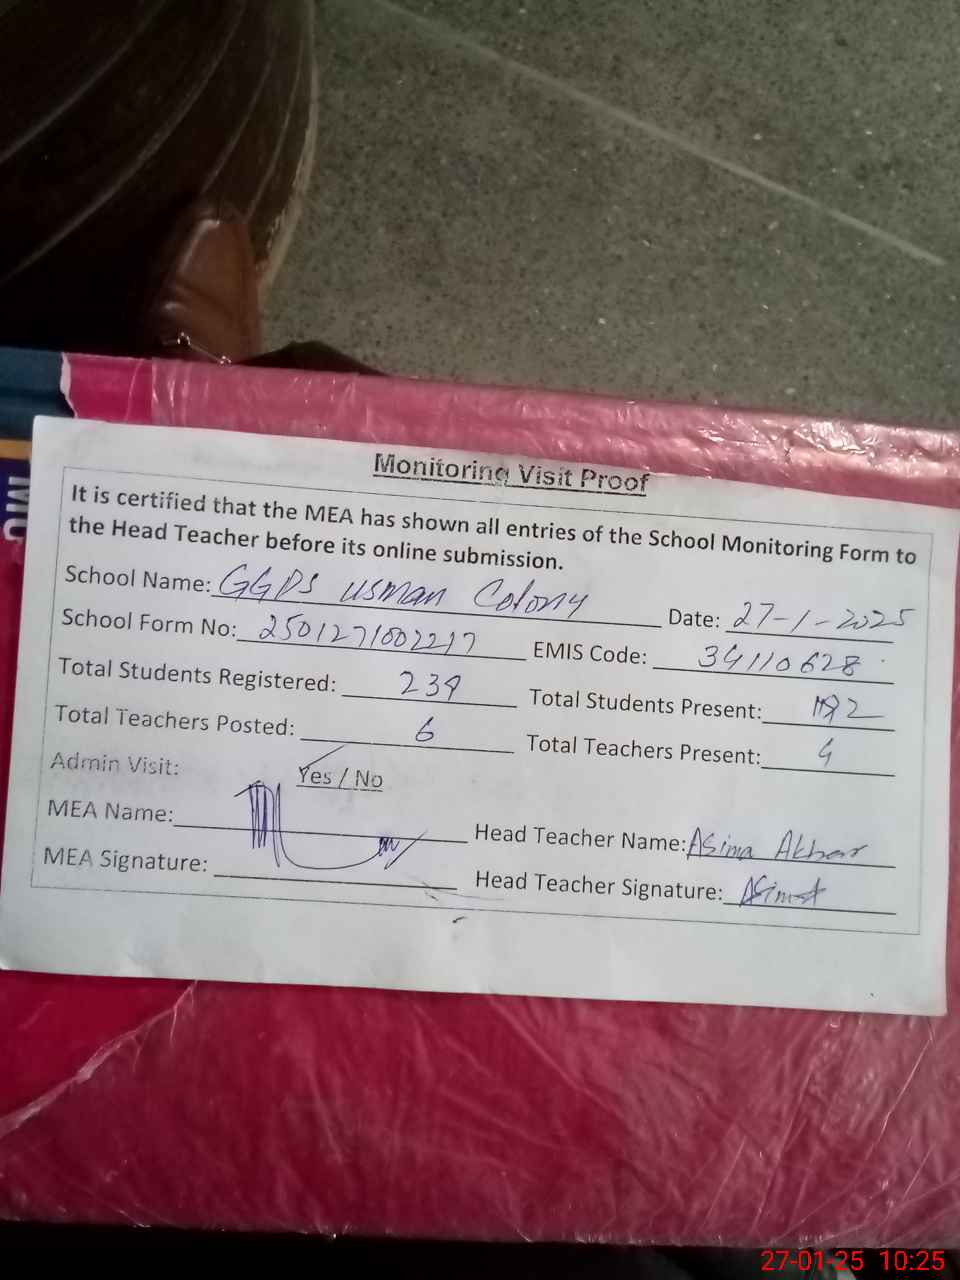 Monitoring Visit Proof
It is certified that the MEA has shown all entries of the School Monitoring Form to
the Head Teacher before its online submission.
School Name: GGPS usman Colony Date: 27-1-2025
School Form No: 2501271002217 EMIS Code: 34110628
Total Students Registered: 239 Total Students Present: 192
Total Teachers Posted: 6 Total Teachers Present: 4
Admin Visit: Yes / No
MEA Name: Head Teacher Name: Asima Akbar
MEA Signature: Head Teacher Signature: Asima
27-01-25 10:25